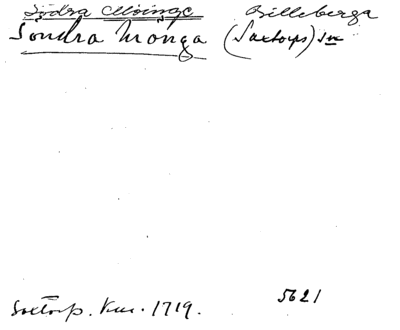 Södra Möinge Billeberga
Söndra Mönga (Saxtorps) sn
Saxtorp. Kur. 1719. 5621